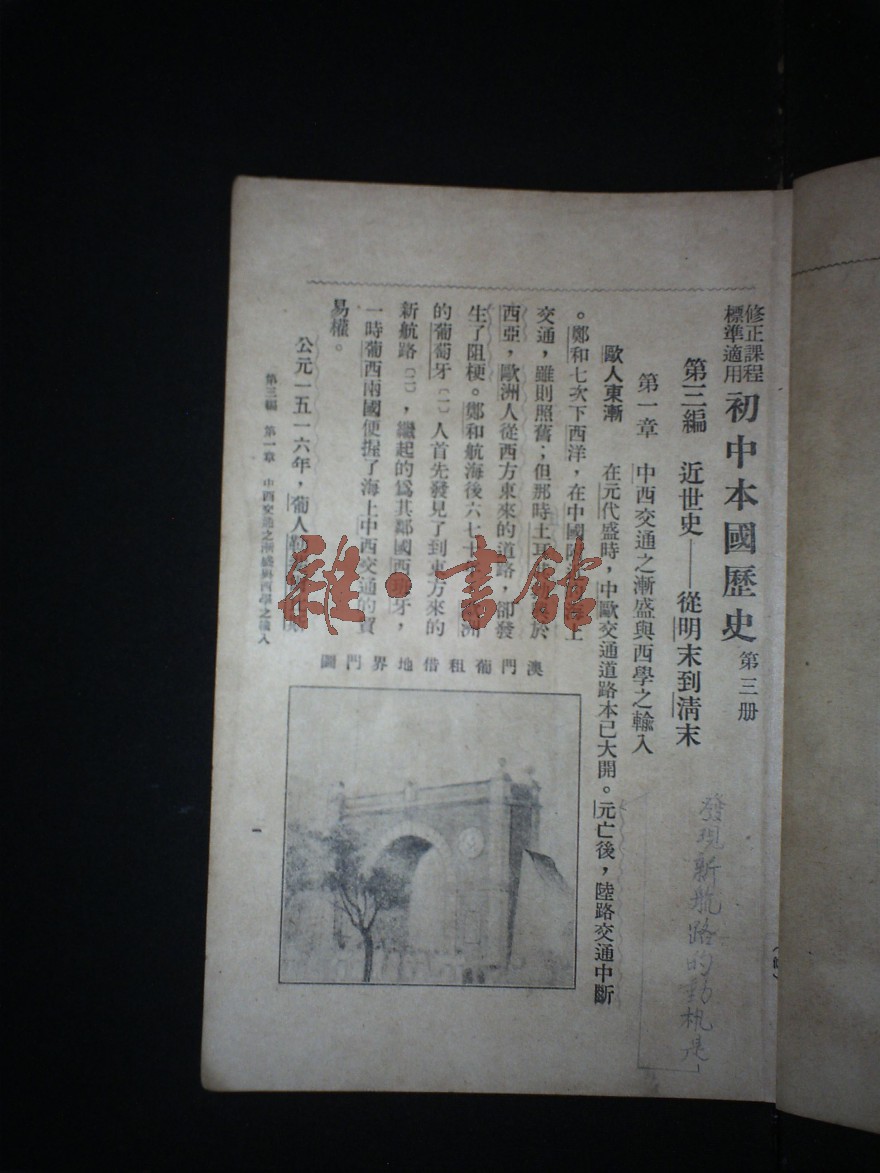 修正課程
標準適用
初中本國歷史 第三册
第三編 近世史——從明末到清末
第一章 中西交通之漸盛與西學之輸入
歐人東漸 在元代盛時,中歐交通道路本已大開。元亡後,陸路交通中斷
。鄭和七次下西洋,在中國 上
交通,雖則照舊;但那時土耳 於
西亞,歐洲人從西方東來的道路,卻發
生了阻梗。鄭和航海後六七十 洲
的葡萄牙〔一〕人首先發見了到東方來的
新航路〔二〕,繼起的爲其鄰國西班牙,
一時葡西兩國便握了海上中西交通的貿
易權。
公元一五一六年,葡人
澳門葡租借地界門圖
第三編 第一章 中西交通之漸盛與西學之輸入
一
發現新航路的動机是
雜·書館